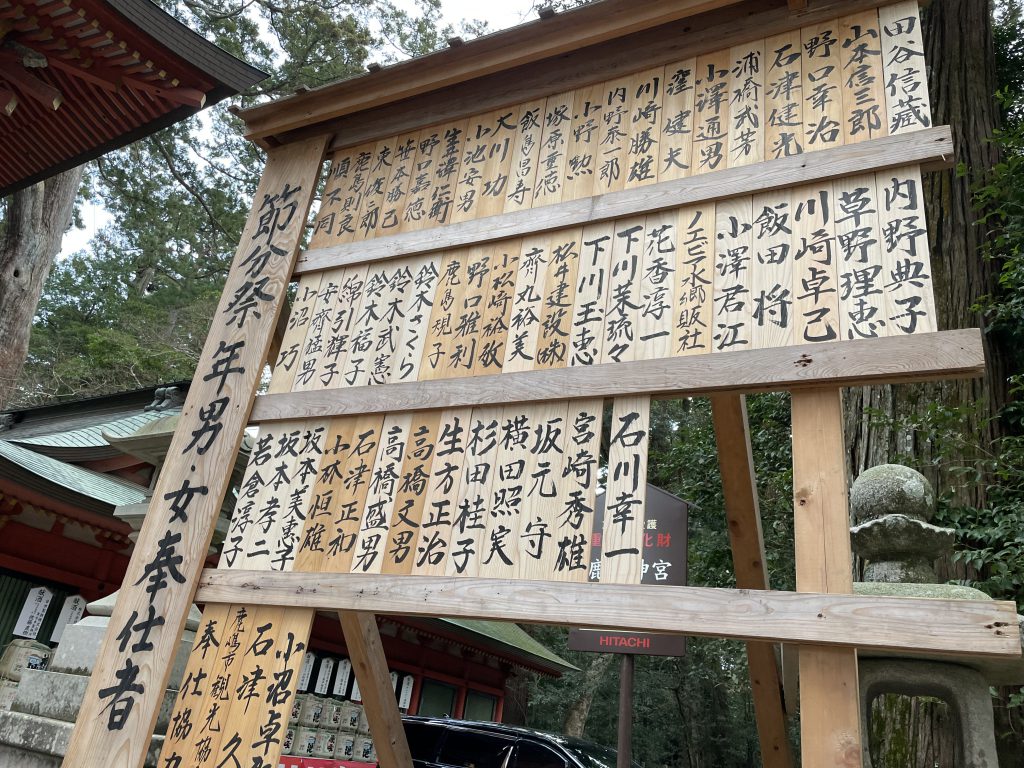 節分祭 年男・女奉仕者
順不同
鹿嶌則良
東俊二郎
笹本勝己
野口嘉徳
小池安男
大川功
飯嶌昌寿
塚原重徳
小野勲
川崎勝雄
窪健夫
小澤通男
浦橋武芳
石津健光
野口幸治
山本信三郎
田谷信蔵
小沼巧
安齊猛男
綿引輝子
鈴木福子
鈴木武憲
鈴木さくら
鹿嶌規子
野口雅利
小松崎裕敬
齊丸裕美
松井建設㈱
下川玉恵
下川茉琉々
花香淳一
ノエビア水郷販社
小澤君江
飯田将
川崎卓己
草野理恵
内野典子
若倉淳子
坂本孝二
坂本美恵子
小林恒雄
石津正和
高橋盛男
高橋又男
生方正治
杉田桂子
横田照実
坂元守
宮崎秀雄
石川幸一
奉仕協力
鹿嶋市観光協
石津久
小沼卓
護
重 化財
鹿 神宮
HITACHI